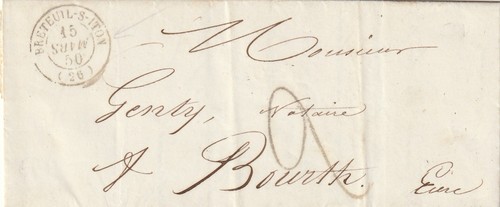 BRETEUIL-S-ITON
15
MARS
50
(26)
Monsieur
Genty, Notaire
A Bourth.
Eure
2